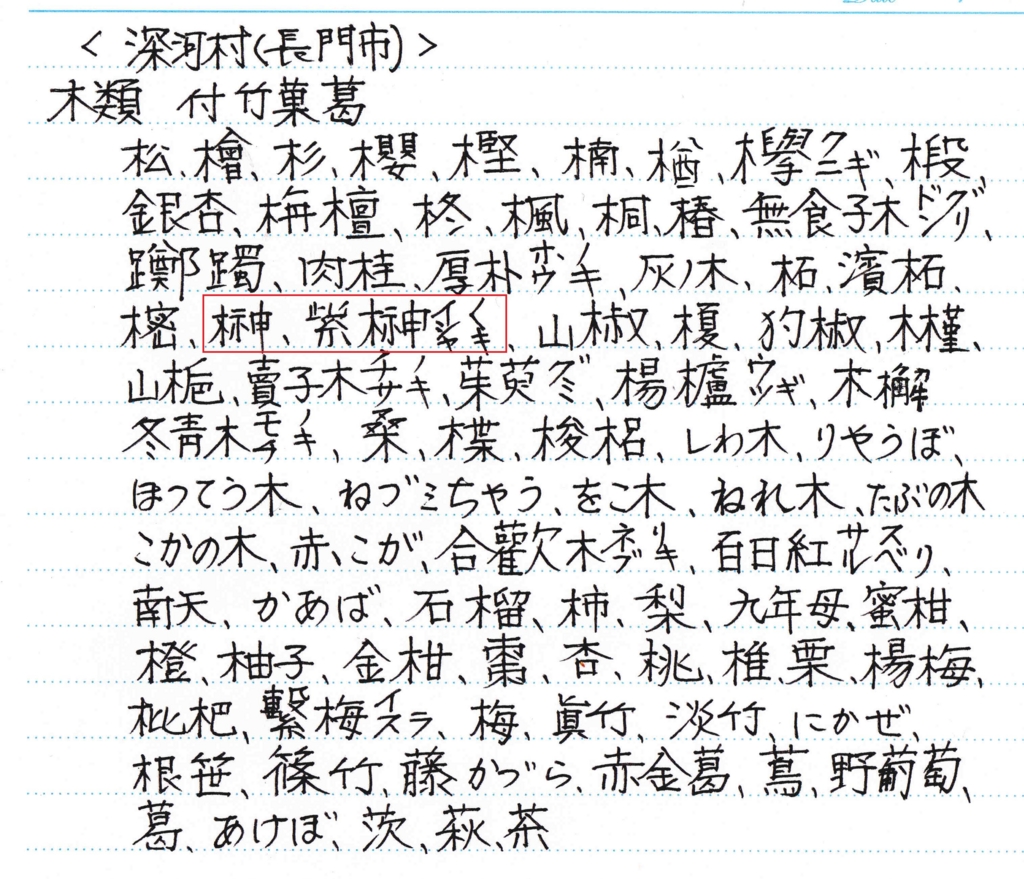 < 深河村(長門市) >
木類 付竹菓葛
松、檜、杉、櫻、樫、楠、楢、櫸クニギ、椴、
銀杏、栴檀、柊、楓、桐、椿、無食子木ドングリ、
躑躅、肉桂、厚朴ホウノキ、灰ノ木、柘、濱柘、
樒、榊、柴榊イヌサカキ、山椒、榎、犳椒、木槿、
山梔、賣子木チサノキ、茱萸グミ、楊櫨ウツギ、木檞
冬青木モチノキ、桑、楪、梭梠、しわ木、りやうぼ、
ほつてう木、ねづミちやう、をこ木、ねれ木、たぶの木
こかの木、赤こが、合歡木ネブリキ、百日紅サルスベリ、
南天、かあば、石榴、柿、梨、九年母、蜜柑、
橙、柚子、金柑、棗、杏、桃、椎、栗、楊梅、
枇杷、繋梅イスラ、梅、眞竹、淡竹、にかぜ、
根笹、篠竹、藤かづら、赤金葛、蔦、野葡萄、
葛、あけぼ、茨、萩、茶